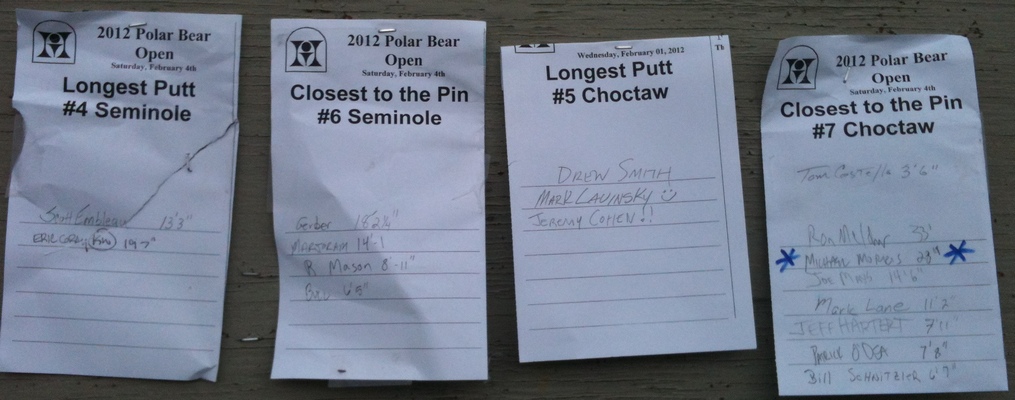 2012 Polar Bear
Open
Saturday, February 4th
Longest Putt
#4 Seminole
13'3"
2012 Polar Bear
Open
Saturday, February 4th
Closest to the Pin
#6 Seminole
Gerber 18'2½"
14-1
R Mason 8-11"
Wednesday, February 01, 2012
Longest Putt
#5 Choctaw
DREW SMITH
MARK LAVINSKY
JEREMY COHEN!!
2012 Polar Bear
Open
Saturday, February 4th
Closest to the Pin
#7 Choctaw
Tom 3'6"
Ron
MICHAEL
14'6"
Mark Lane 11'2"
JEFF HARTERT
PATRICK O'DEA 7'8"
Bill SCHNITZLER 6'7"